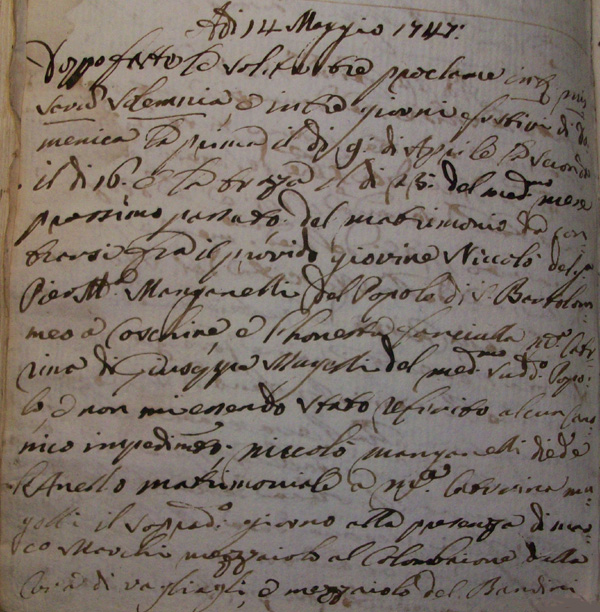 Adi 14 Maggio 1747:
Doppo fatto le solite tre proclame
Solemnia e in tre giorni festivi di Do=
menica la prima il di 9. di Aprile la seconda
il di 16. e la terza il di 23. del med.mo mese
prossimo passato. del matrimonio da con=
trarsi fra il provido giovine Niccolò del q.
Pier M.a Manganelli del Popolo di S. Bartolom=
meo a Coschine e l'honesta fanciulla M.a Cate=
rina di Giuseppe Magolli del med.mo sud.o Popo=
lo, e non mi essendo stato referito alcun cano=
nico impedim.to. niccolò manganelli diede
l'Anello matrimoniale a M.a Caterina ma=
golli il soprad.o giorno alla presenza di mar=
co Marchi mezzaiolo al Colombaione della
Cura di vagliagli, e mezzaiolo del Bandini